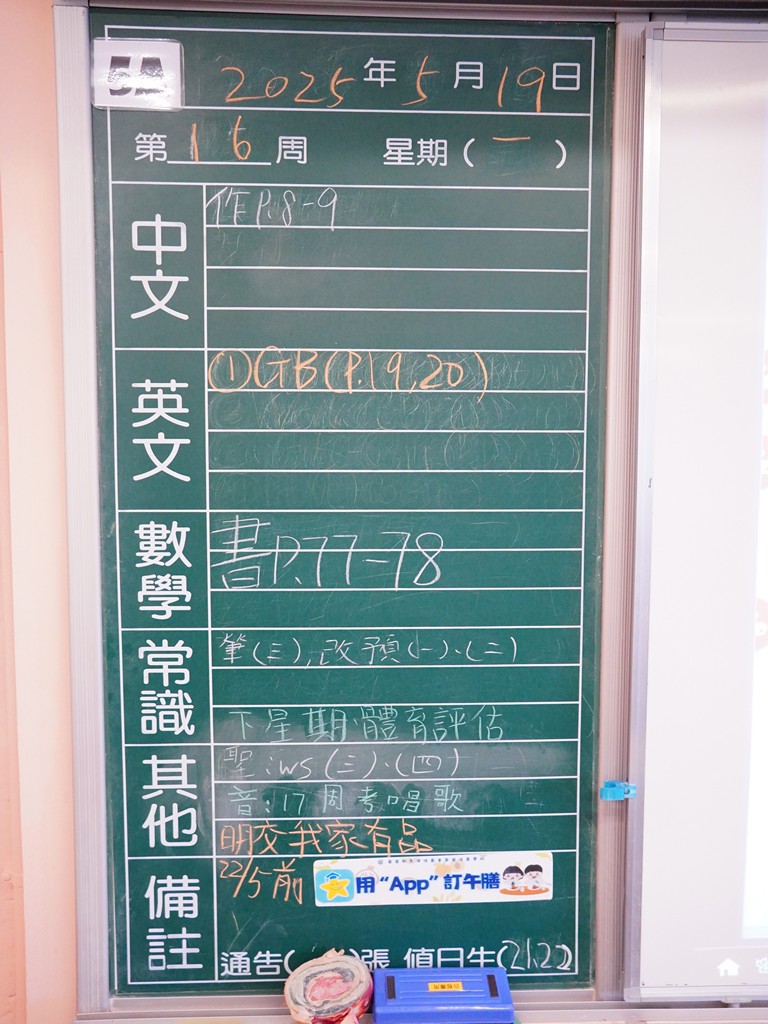 5A
2025年5月19日
第16周 星期(一)
中文
作P.8-9
英文
①GB(P.19,20)
數學
書P.77-78
常識
筆(三),改預(一)、(二)
下星期體育評估
其他
聖:ws(三)、(四)
音:17周考唱歌
明交我家有品
備註
22/5前
用“App”訂午膳
通告( )張 值日生(21,22)